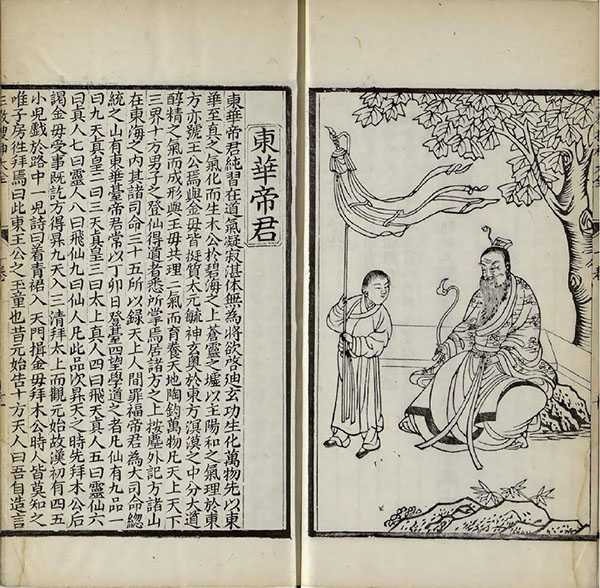 東華帝君
東華帝君純習在道氣凝寂湛体無為將欲啓迪玄功生化萬物先以東
華至真之氣化而生木公於碧海之上蒼靈之墟以主陽和之氣理於東
方亦號王公焉與金母皆挺質太元毓神玄奥於東方溟漠之中分大道
醇精之氣而成形與王母共理二氣而育養天地陶鈞萬物凡天上天下
三界十方男子之登仙得道者悉所掌焉居諸方之上按塵外記方諸山
在東海之内其諸司命三十五所以録天上人間罪福帝君為大司命總
統之山有東華臺帝君常以丁卯日登臺四望學道之者凡仙有九品一
曰九天真皇二曰三天真皇三曰太上真人四曰飛天真人五曰靈仙六
曰真人七曰靈人八曰飛仙九曰仙人凡此品次昇天之時先拜木公後
謁金母受事既訖方得昇九天入三清拜太上而觀元始故漢初有四五
小兒戲於路中一兒詩曰着青裙入天門揖金母拜木公時人皆莫知之
唯子房往拜焉曰此東王公之玉童也昔元始告十方天人曰吾自造言